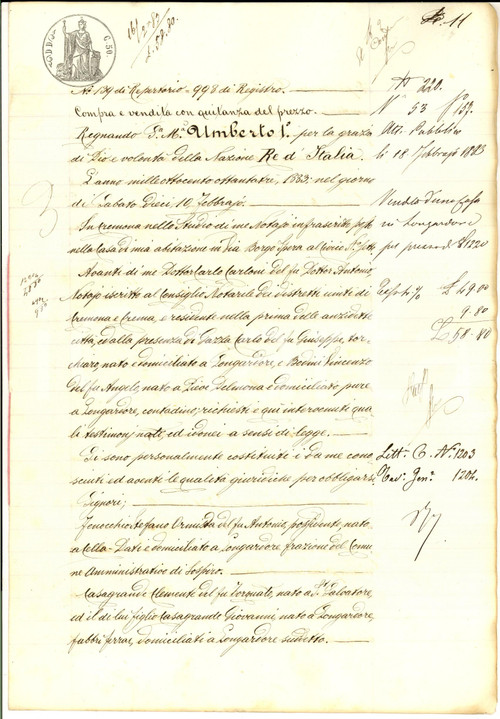 N. 11
C. 50
16/2-83
L. 58.80
N.° 139 di Repertorio - 998 di Registro.
Compra e vendita con quitanza del prezzo.
Regnando S.ª M.ª Umberto I.° per la grazia
di Dio e volontà della Nazione Re d'Italia.
L'anno mille ottocento ottantatre, 1883: nel giorno
di Sabato Dieci 10 Febbrajo.
In Cremona nello Studio di me Notajo infrascritto posto
nella Casa di mia abitazione in Via Borgo Spera al Civico N.°
Avanti di me Dottor Carlo Carloni del fu Dottor Antonio,
Notajo iscritto al Consiglio Notarile dei distretti uniti di
Cremona e Crema, e residente nella prima delle anzidette
città, ed alla presenza di Gazza Carlo del fu Giuseppe,
nato e domiciliato a Longardore, e Bodini Vincenzo
del fu Angelo, nato a Pieve Delmona e domiciliato pure
a Longardore, contadino; richiesti e qui intervenuti qua-
li testimonj noti, ed idonei a sensi di legge.
Si sono personalmente costituiti i da me cono-
sciuti ed aventi le qualità giuridiche per obbligarsi
Signori;
Fenocchio Stefano Ermista del fu Antonio, possidente, nato
a Cella-Dati e domiciliato a Longardore frazione del Comu-
ne Amministrativo di Sospiro.
Casagrande Clemente del fu Fortunato, nato a S. Salvatore
ed il di lui figlio Casagrande Giovanni, nato a Longardore,
fabbri ferrai, domiciliati a Longardore suddetto.
A 220
N.° 53 f.° 157
Atti Pubblici
li 18 Febbrajo 1883
Vendita d'una Casa
in Longardore
pel prezzo di £ 1220
£ 49.00
9.80
£ 58.80
Lett. C. N.° 1203
Gen.e 1204